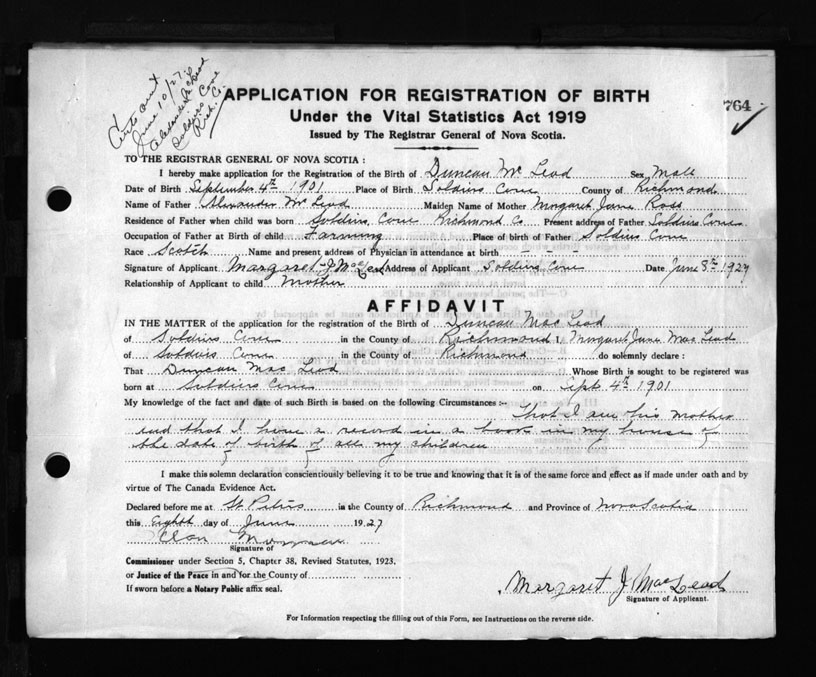 Certs out
June 10/27 to
Alexander McLeod
Soldiers Cove
Rich. Co.
764
APPLICATION FOR REGISTRATION OF BIRTH
Under the Vital Statistics Act 1919
Issued by The Registrar General of Nova Scotia.
TO THE REGISTRAR GENERAL OF NOVA SCOTIA :
I hereby make application for the Registration of the Birth of Duncan McLeod Sex Male
Date of Birth September 4th 1901 Place of Birth Soldiers Cove County of Richmond
Name of Father Alexander McLeod Maiden Name of Mother Margaret Jane Ross
Residence of Father when child was born Soldiers Cove Richmond Co Present address of Father Soldiers Cove
Occupation of Father at Birth of child Farming Place of birth of Father Soldiers Cove
Race Scotch Name and present address of Physician in attendance at birth - - -
Signature of Applicant Margaret J MacLeod Address of Applicant Soldiers Cove Date June 8th 1927
Relationship of Applicant to child Mother
AFFIDAVIT
IN THE MATTER of the application for the registration of the Birth of Duncan MacLeod
of Soldiers Cove in the County of Richmond I, Margaret Jane MacLeod
of Soldiers Cove in the County of Richmond do solemnly declare :
That Duncan MacLeod Whose Birth is sought to be registered was
born at Soldiers Cove on Sept 4th 1901
My knowledge of the fact and date of such Birth is based on the following Circumstances :- That I am his mother
and that I have a record in a book in my house of
the date of birth of all my children
I make this solemn declaration conscientiously believing it to be true and knowing that it is of the same force and effect as if made under oath and by
virtue of The Canada Evidence Act.
Declared before me at St Peters in the County of Richmond and Province of Nova Scotia
this Eighth day of June 1927
Signature of
Commissioner under Section 5, Chapter 38, Revised Statutes, 1923.
or Justice of the Peace in and for the County of
If sworn before a Notary Public affix seal.
Margaret J. MacLeod
Signature of Applicant.
For Information respecting the filling out of this Form, see Instructions on the reverse side.